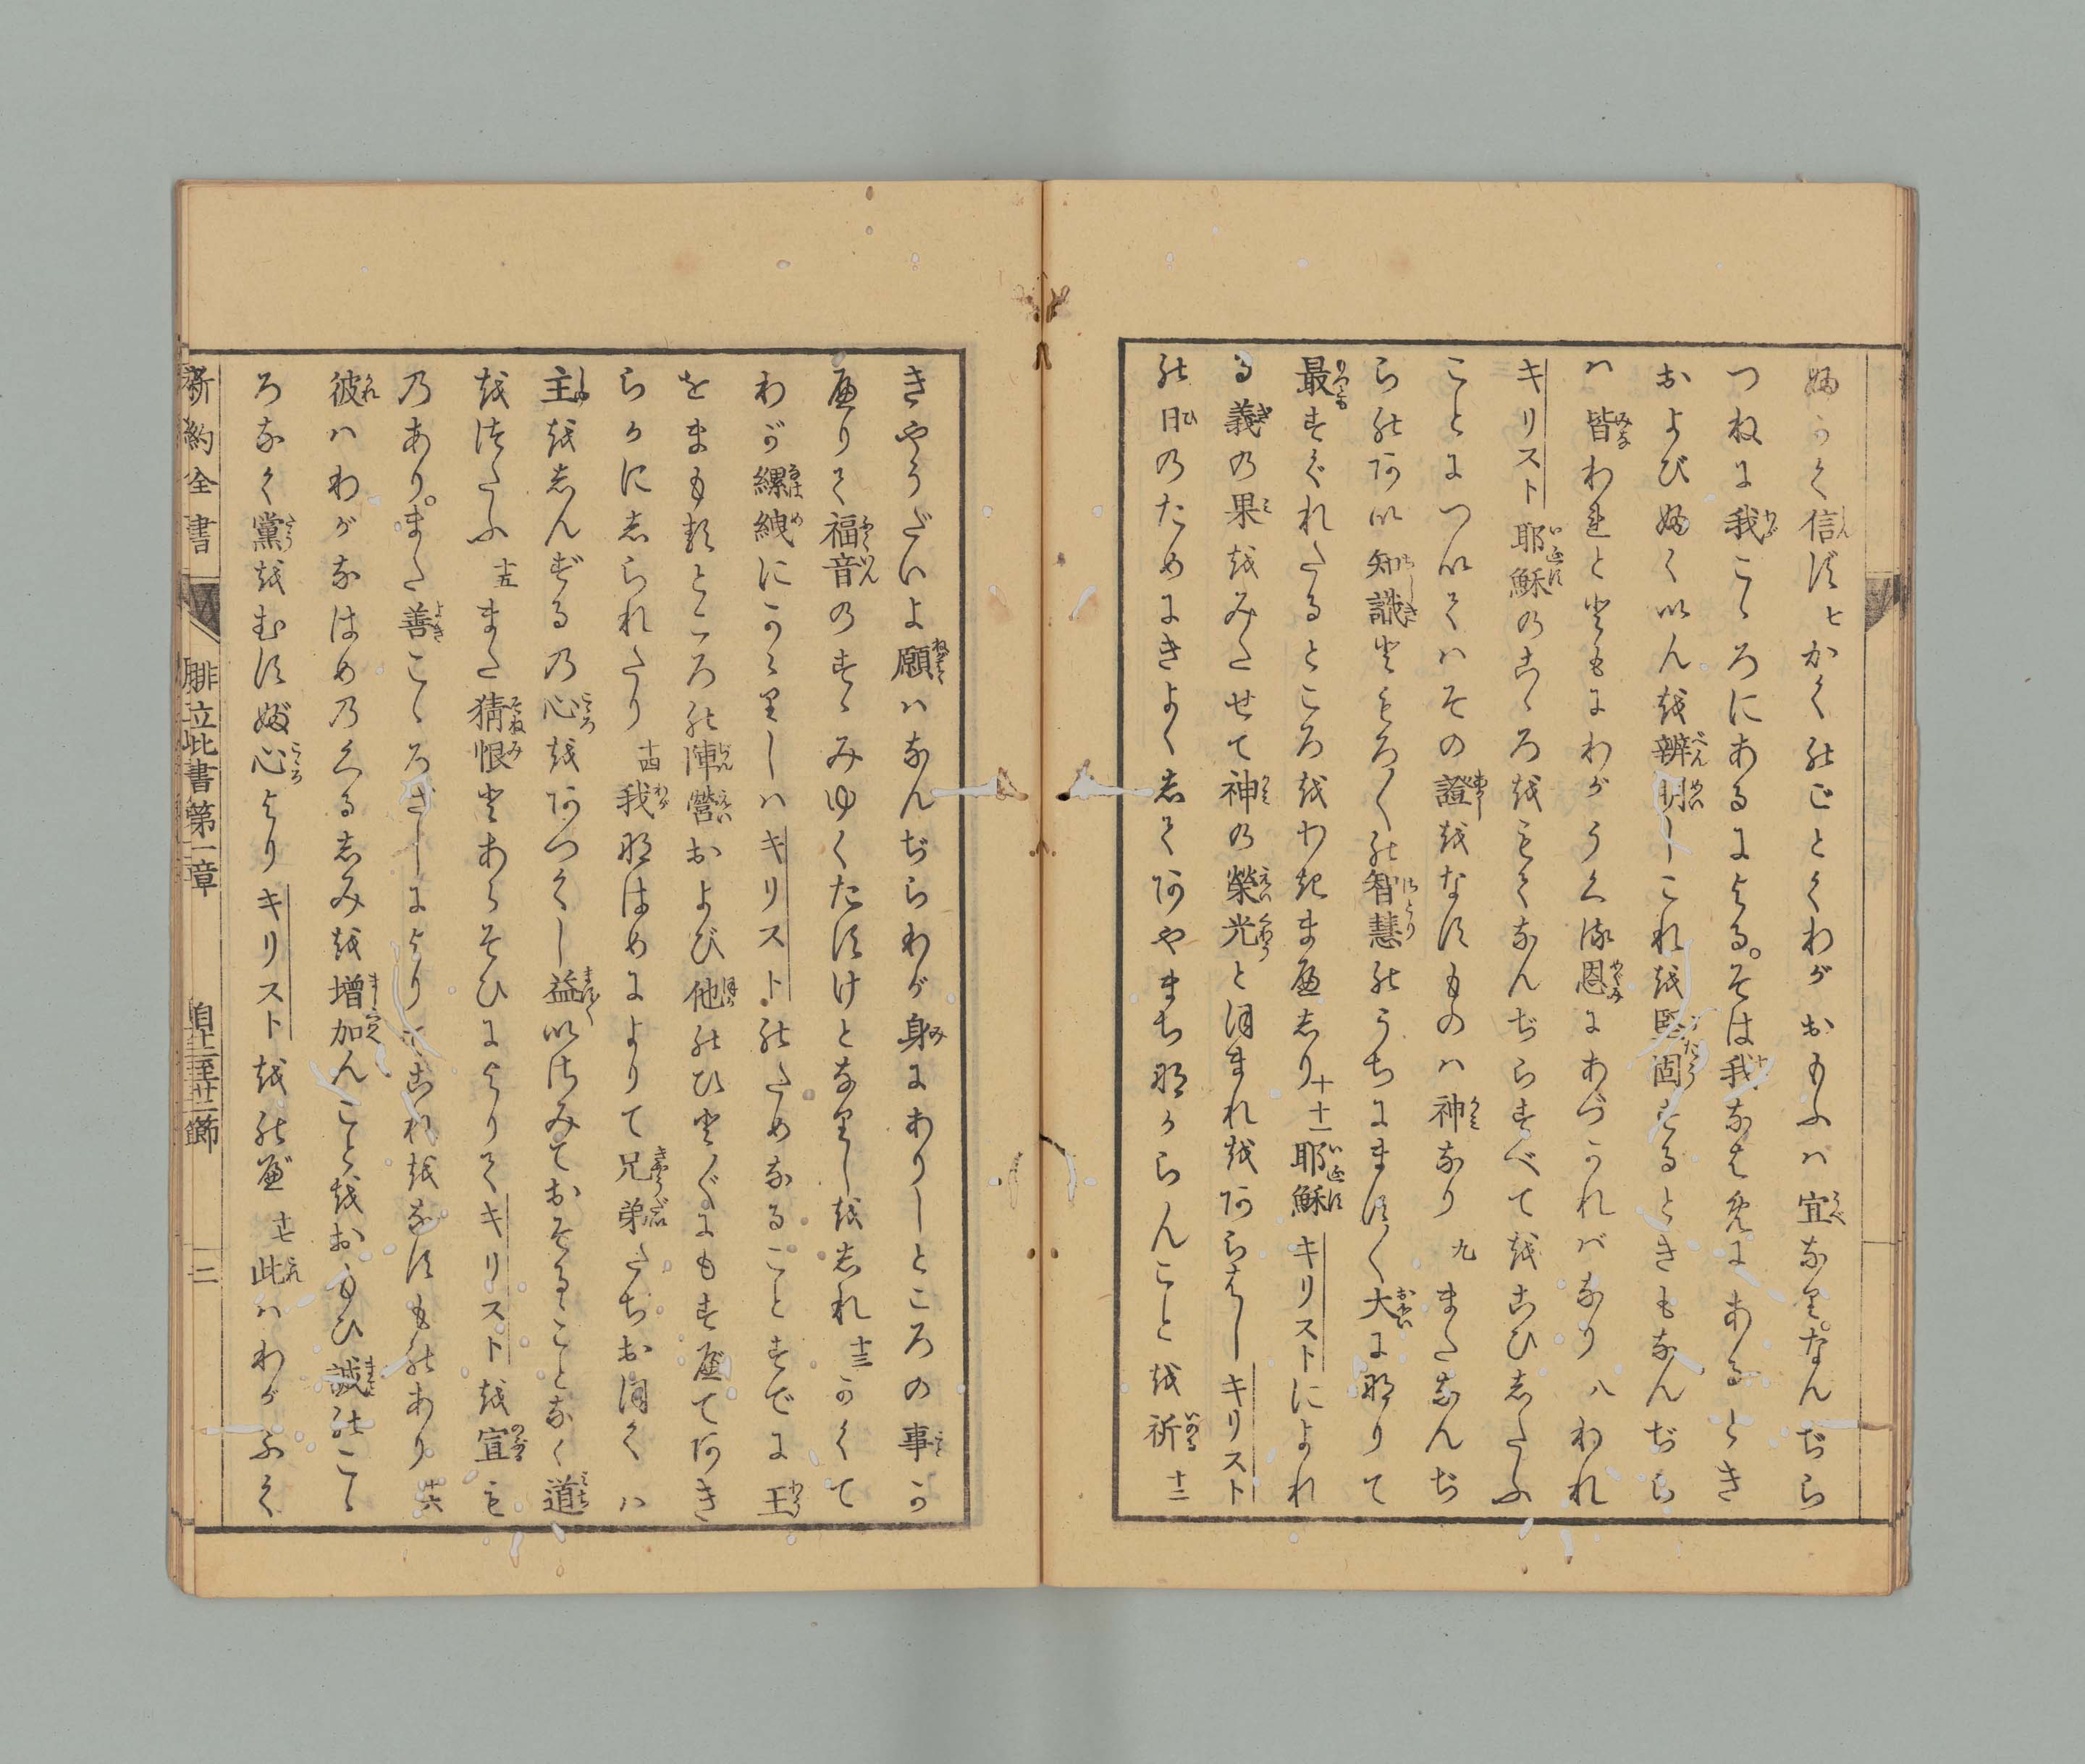 ふかく信ず七かくのごとくわがおもふハ宜なり。なんぢら
つねに我こゝろにあるによる。そは我なはめにあるとき
およびふくいんを辨明しこれを堅固するときもなんぢら
ハ皆われとともにわがうくる恩にあづかれバなり八われ
キリスト耶穌のこゝろをもてなんぢらすべてをこひしたふ
ことについてハその證をなすものハ神なり九またなんぢ
らのあい知識ともろ〳〵の智慧のうちにます〳〵大になりて
最すぐれたるところをわきまへしり十十一耶穌キリストによれ
る義の果をみたせて神の榮光とほまれをあらはしキリスト
の日のためにきよくしてあやまちなからんことを祈十二
きやうだいよ願ハなんぢらわが身にありしところの事か
へりて福音のすゝみゆくたすけとなりしをしれ十三かくて
わが縲絏にかゝりしハキリストのためなることすでに王
をまもるところの陣營および他のひと〴〵にもすべてあき
らかにしられたり十四我なはめによりて兄弟たちおほくハ
主をしんずるの心をあつくし益いさみておそるゝことなく道
をつたふ十五また猜恨とあらそひによりてキリストを宣も
のあり。また善こゝろざしによりてこれをなすものあり十六
彼ハわがなはめのくるしみを増加んことをおもひ誠のこゝ
ろなく黨をむすぶ心よりキリストをのぶ十七此ハわがふく
新約全書 腓立比書第一章 自十二至廿二節 二